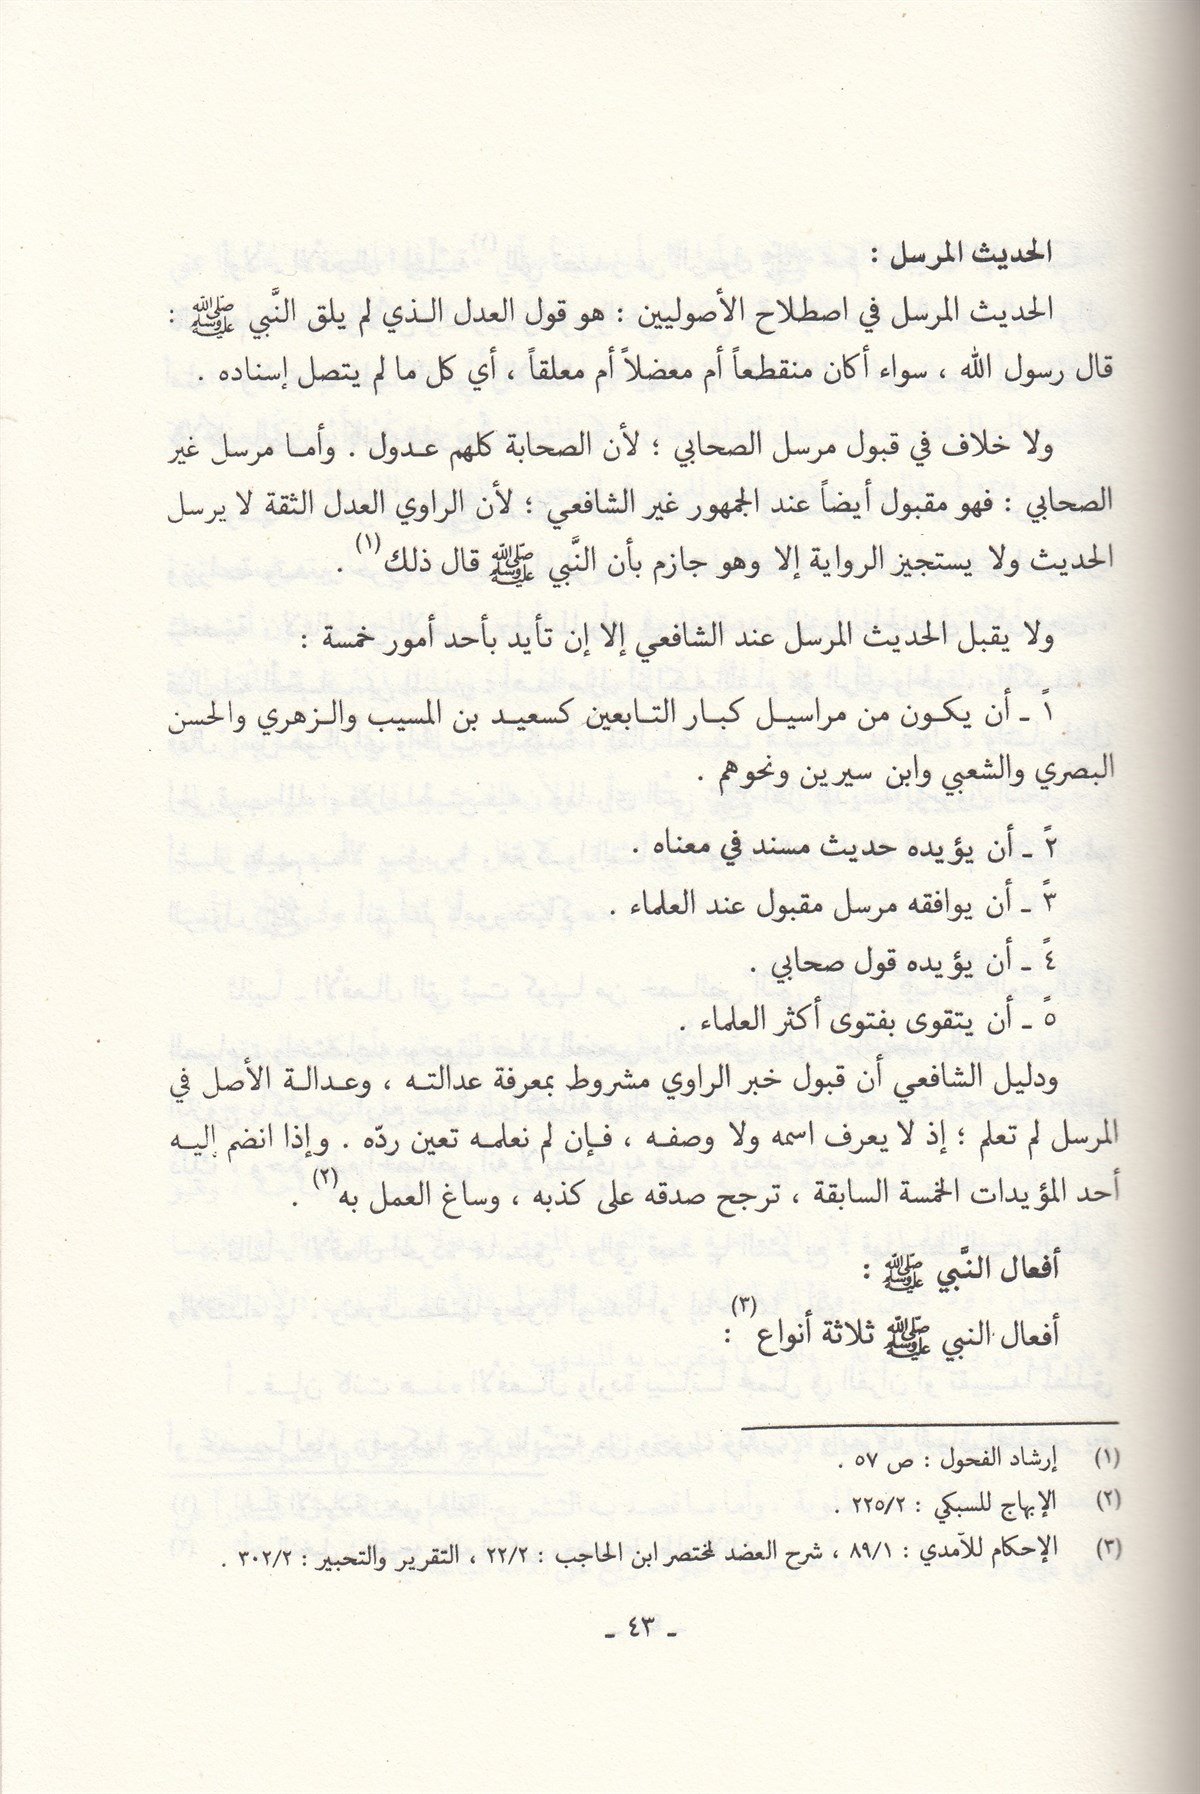 الحديث المرسل :
الحديث المرسل في اصطلاح الأصوليين : هو قول العدل الـذي لم يلق النَّبي ﷺ :
قال رسول الله ، سواء أكان منقطعاً أم معضلاً أم معلقاً ، أي كل ما لم يتصل إسناده .
ولا خلاف في قبول مرسل الصحابي ؛ لأن الصحابة كلهم عـدول . وأمـا مرسل غير
الصحابي : فهو مقبول أيضاً عند الجمهور غير الشافعي ؛ لأن الراوي العدل الثقة لا يرسل
الحديث ولا يستجيز الرواية إلا وهو جازم بأن النَّبي ﷺ قال ذلك (١) .
ولا يقبل الحديث المرسل عند الشافعي إلا إن تأيد بأحد أمور خمسة :
١ً ـ أن يكـون من مراسيـل كبـار التـابعين كسعيـد بن المسيب والـزهري والحسن
البصري والشعبي وابن سيرين ونحوهم .
٢ً ـ أن يؤيده حديث مسند في معناه .
٣ً ـ أن يوافقه مرسل مقبول عند العلماء .
٤ً ـ أن يؤيده قول صحابي .
٥ً ـ أن يتقوى بفتوى أكثر العلماء .
ودليل الشافعي أن قبول خبر الراوي مشروط بمعرفة عدالتـه ، وعـدالـة الأصل في
المرسل لم تعلم ؛ إذ لا يعرف اسمه ولا وصفـه ، فـإن لم نعلمـه تعين ردّه . وإذا انضم إليـه
أحد المؤيدات الخمسة السابقة ، ترجح صدقه على كذبه ، وساغ العمل به (٢) .
أفعال النَّبي ﷺ :
أفعال النبي ﷺ ثلاثة أنواع (٣) :
(١) إرشاد الفحول : ص ٥٧ .
(٢) الإبهاج للسبكي : ٢٢٥/٢ .
(٣) الإحكام للآمدي : ٨٩/١ ، شرح العضد لمختصر ابن الحاجب : ٢٢/٢ ، التقرير والتحبير : ٣٠٢/٢ .
ـ ٤٣ ـ